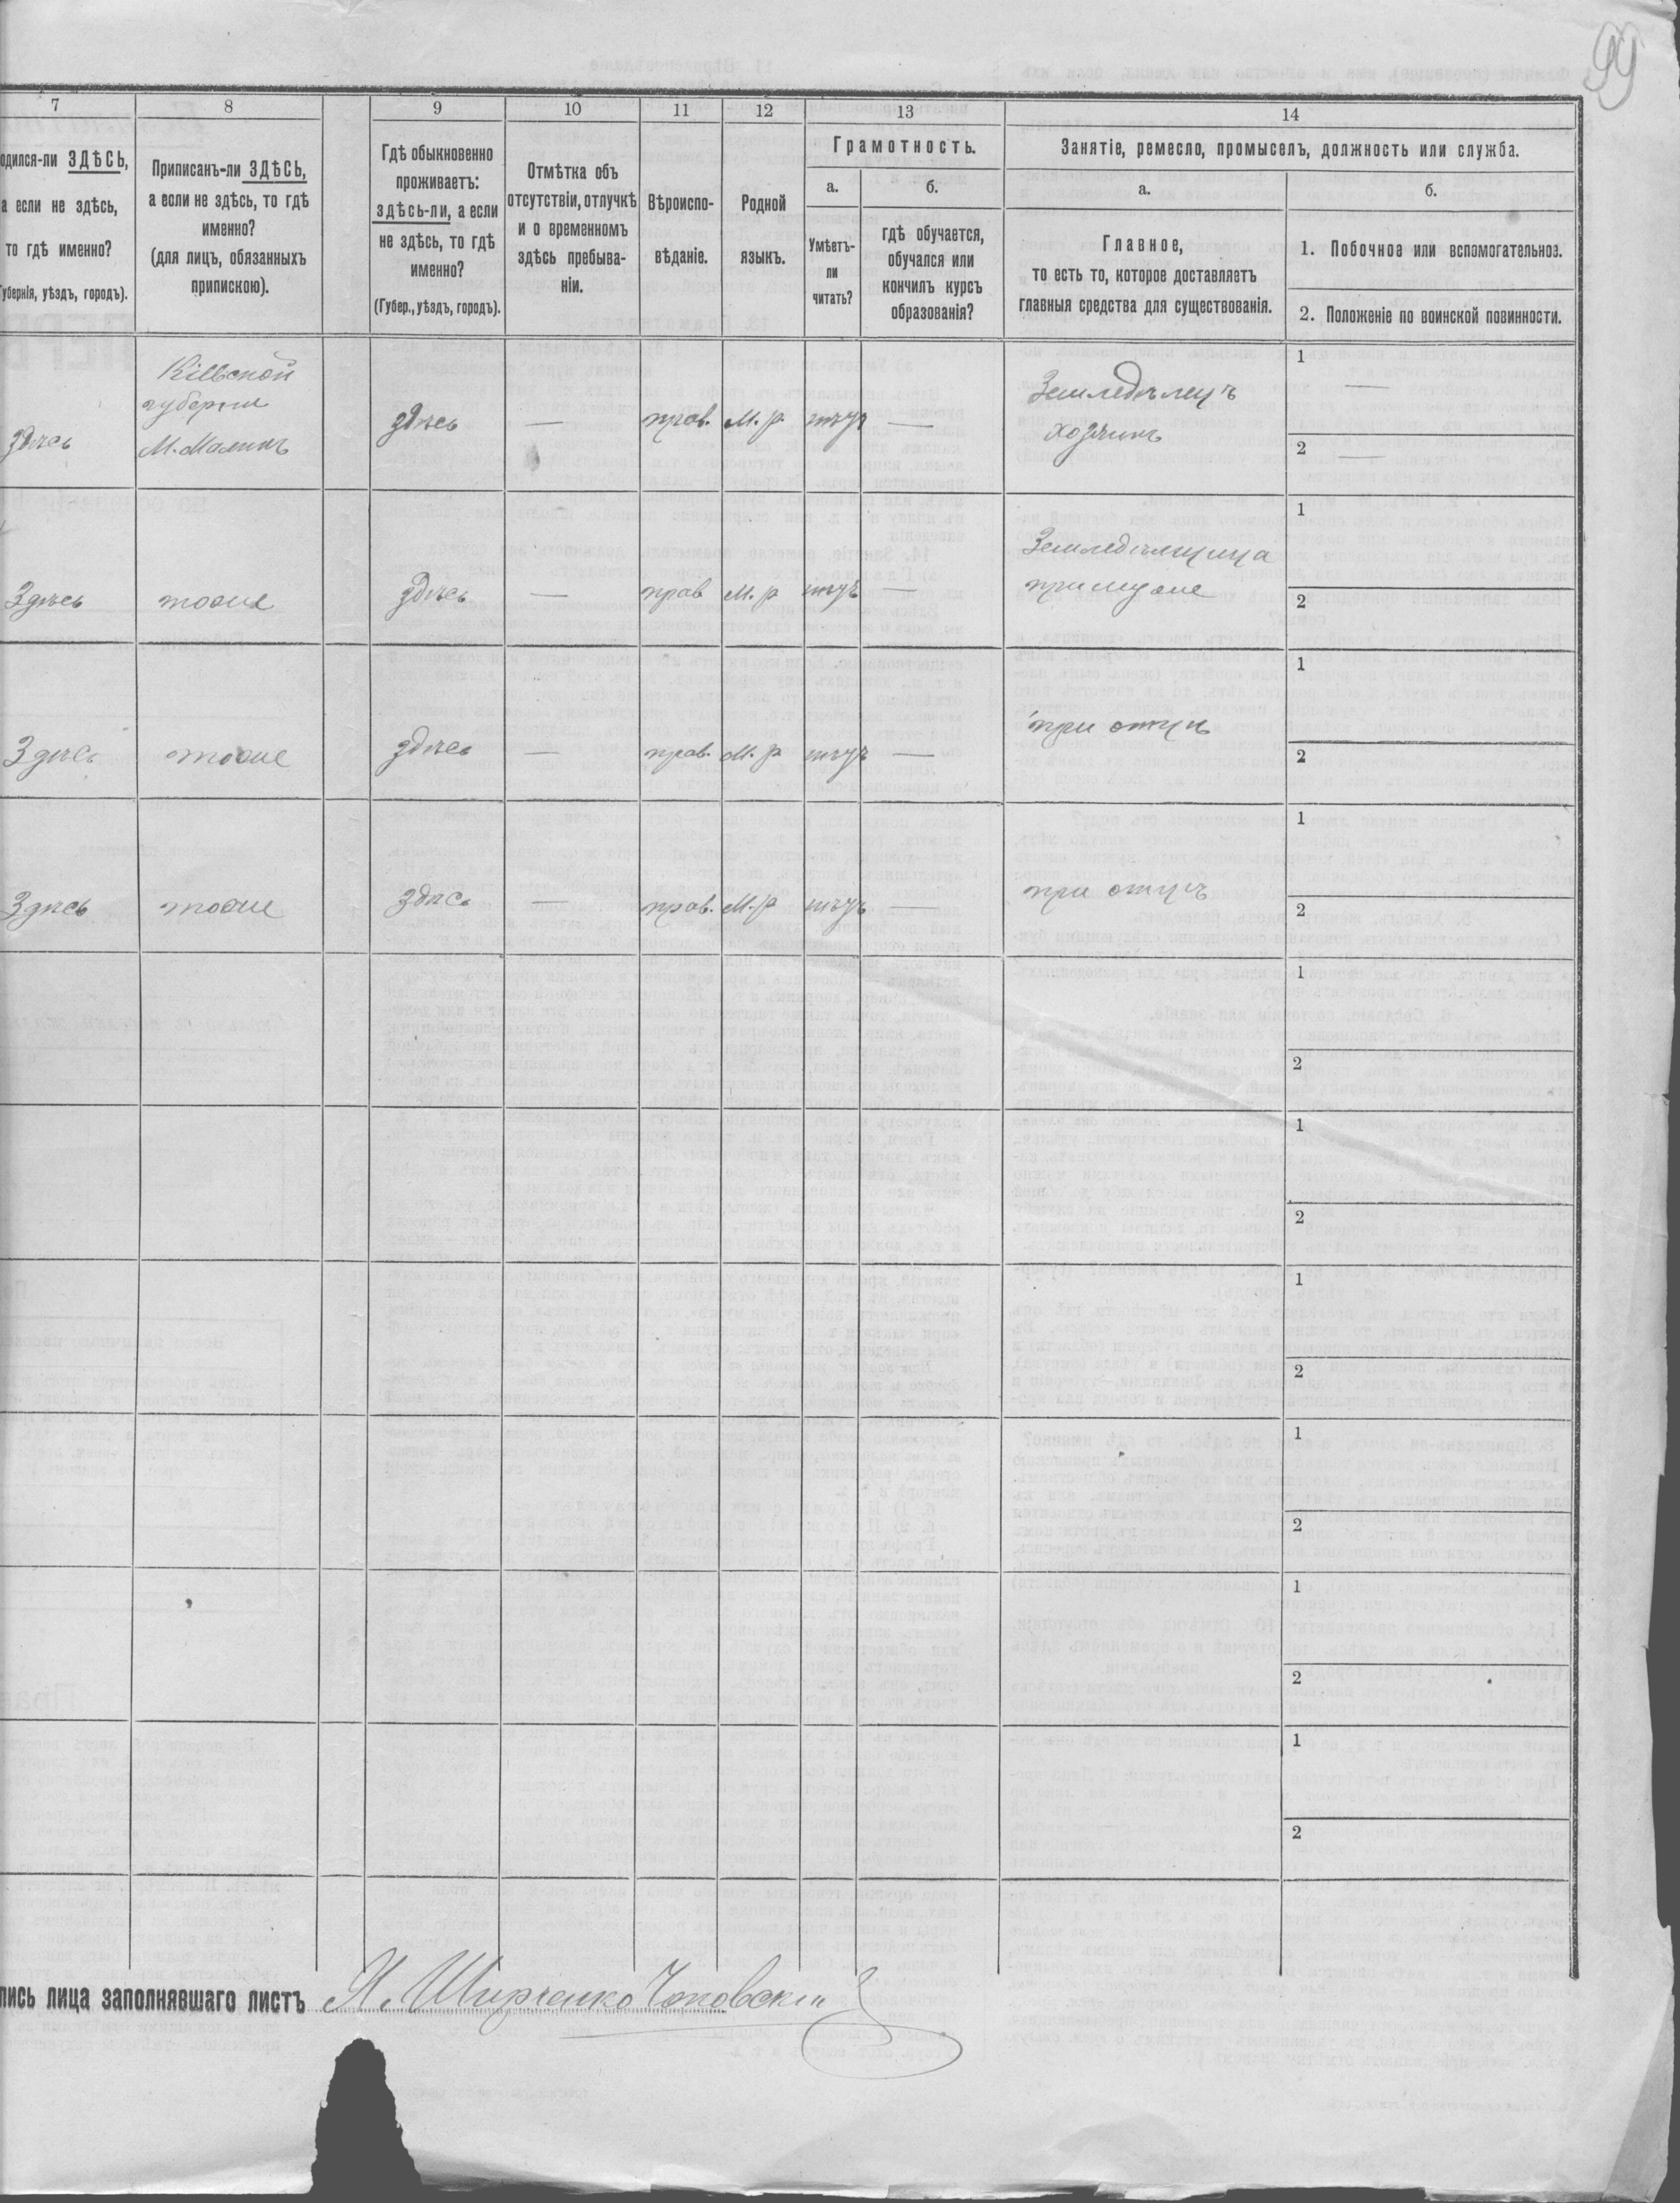 99
7 8 9 10 11 12 13 14
одился-ли ЗДѢСЬ,
а если не здѣсь,
то гдѣ именно?
Губернія, уѣздъ, городъ).
Приписанъ-ли ЗДѢСЬ,
а если не здѣсь, то гдѣ
именно?
(для лицъ, обязанныхъ
припискою).
Гдѣ обыкновенно
проживаетъ:
здѣсь-ли, а если
не здѣсь, то гдѣ
именно?
(Губер., уѣздъ, городъ).
Отмѣтка объ
отсутствіи, отлучкѣ
и о временномъ
здѣсь пребыва-
ніи.
Вѣроиспо-
вѣданіе.
Родной
языкъ.
Грамотность.
а.
Умѣетъ-
ли
читать?
б.
гдѣ обучается,
обучался или
кончилъ курсъ
образованія?
Занятіе, ремесло, промыселъ, должность или служба.
а.
Главное,
то есть то, которое доставляетъ
главныя средства для существованія.
б.
1. Побочное или вспомогательноз.
2. Положеніе по воинской повинности.
Кіевской
губерніи
здѣсь М. Малинъ здѣсь — прав. М. р. —
Земледѣлецъ
хозяинъ
1 —
2 —
Здѣсь тоже здѣсь — прав М. р —
Земледѣлица
при мужѣ
1
2
Здѣсь тоже здѣсь — прав. М. р —
при отцѣ
1
2
Здѣсь тоже здѣсь — прав. М. р —
при отцѣ
1
2
1
2
1
2
1
2
1
2
1
2
1
2
пись лица заполнявшаго листъ